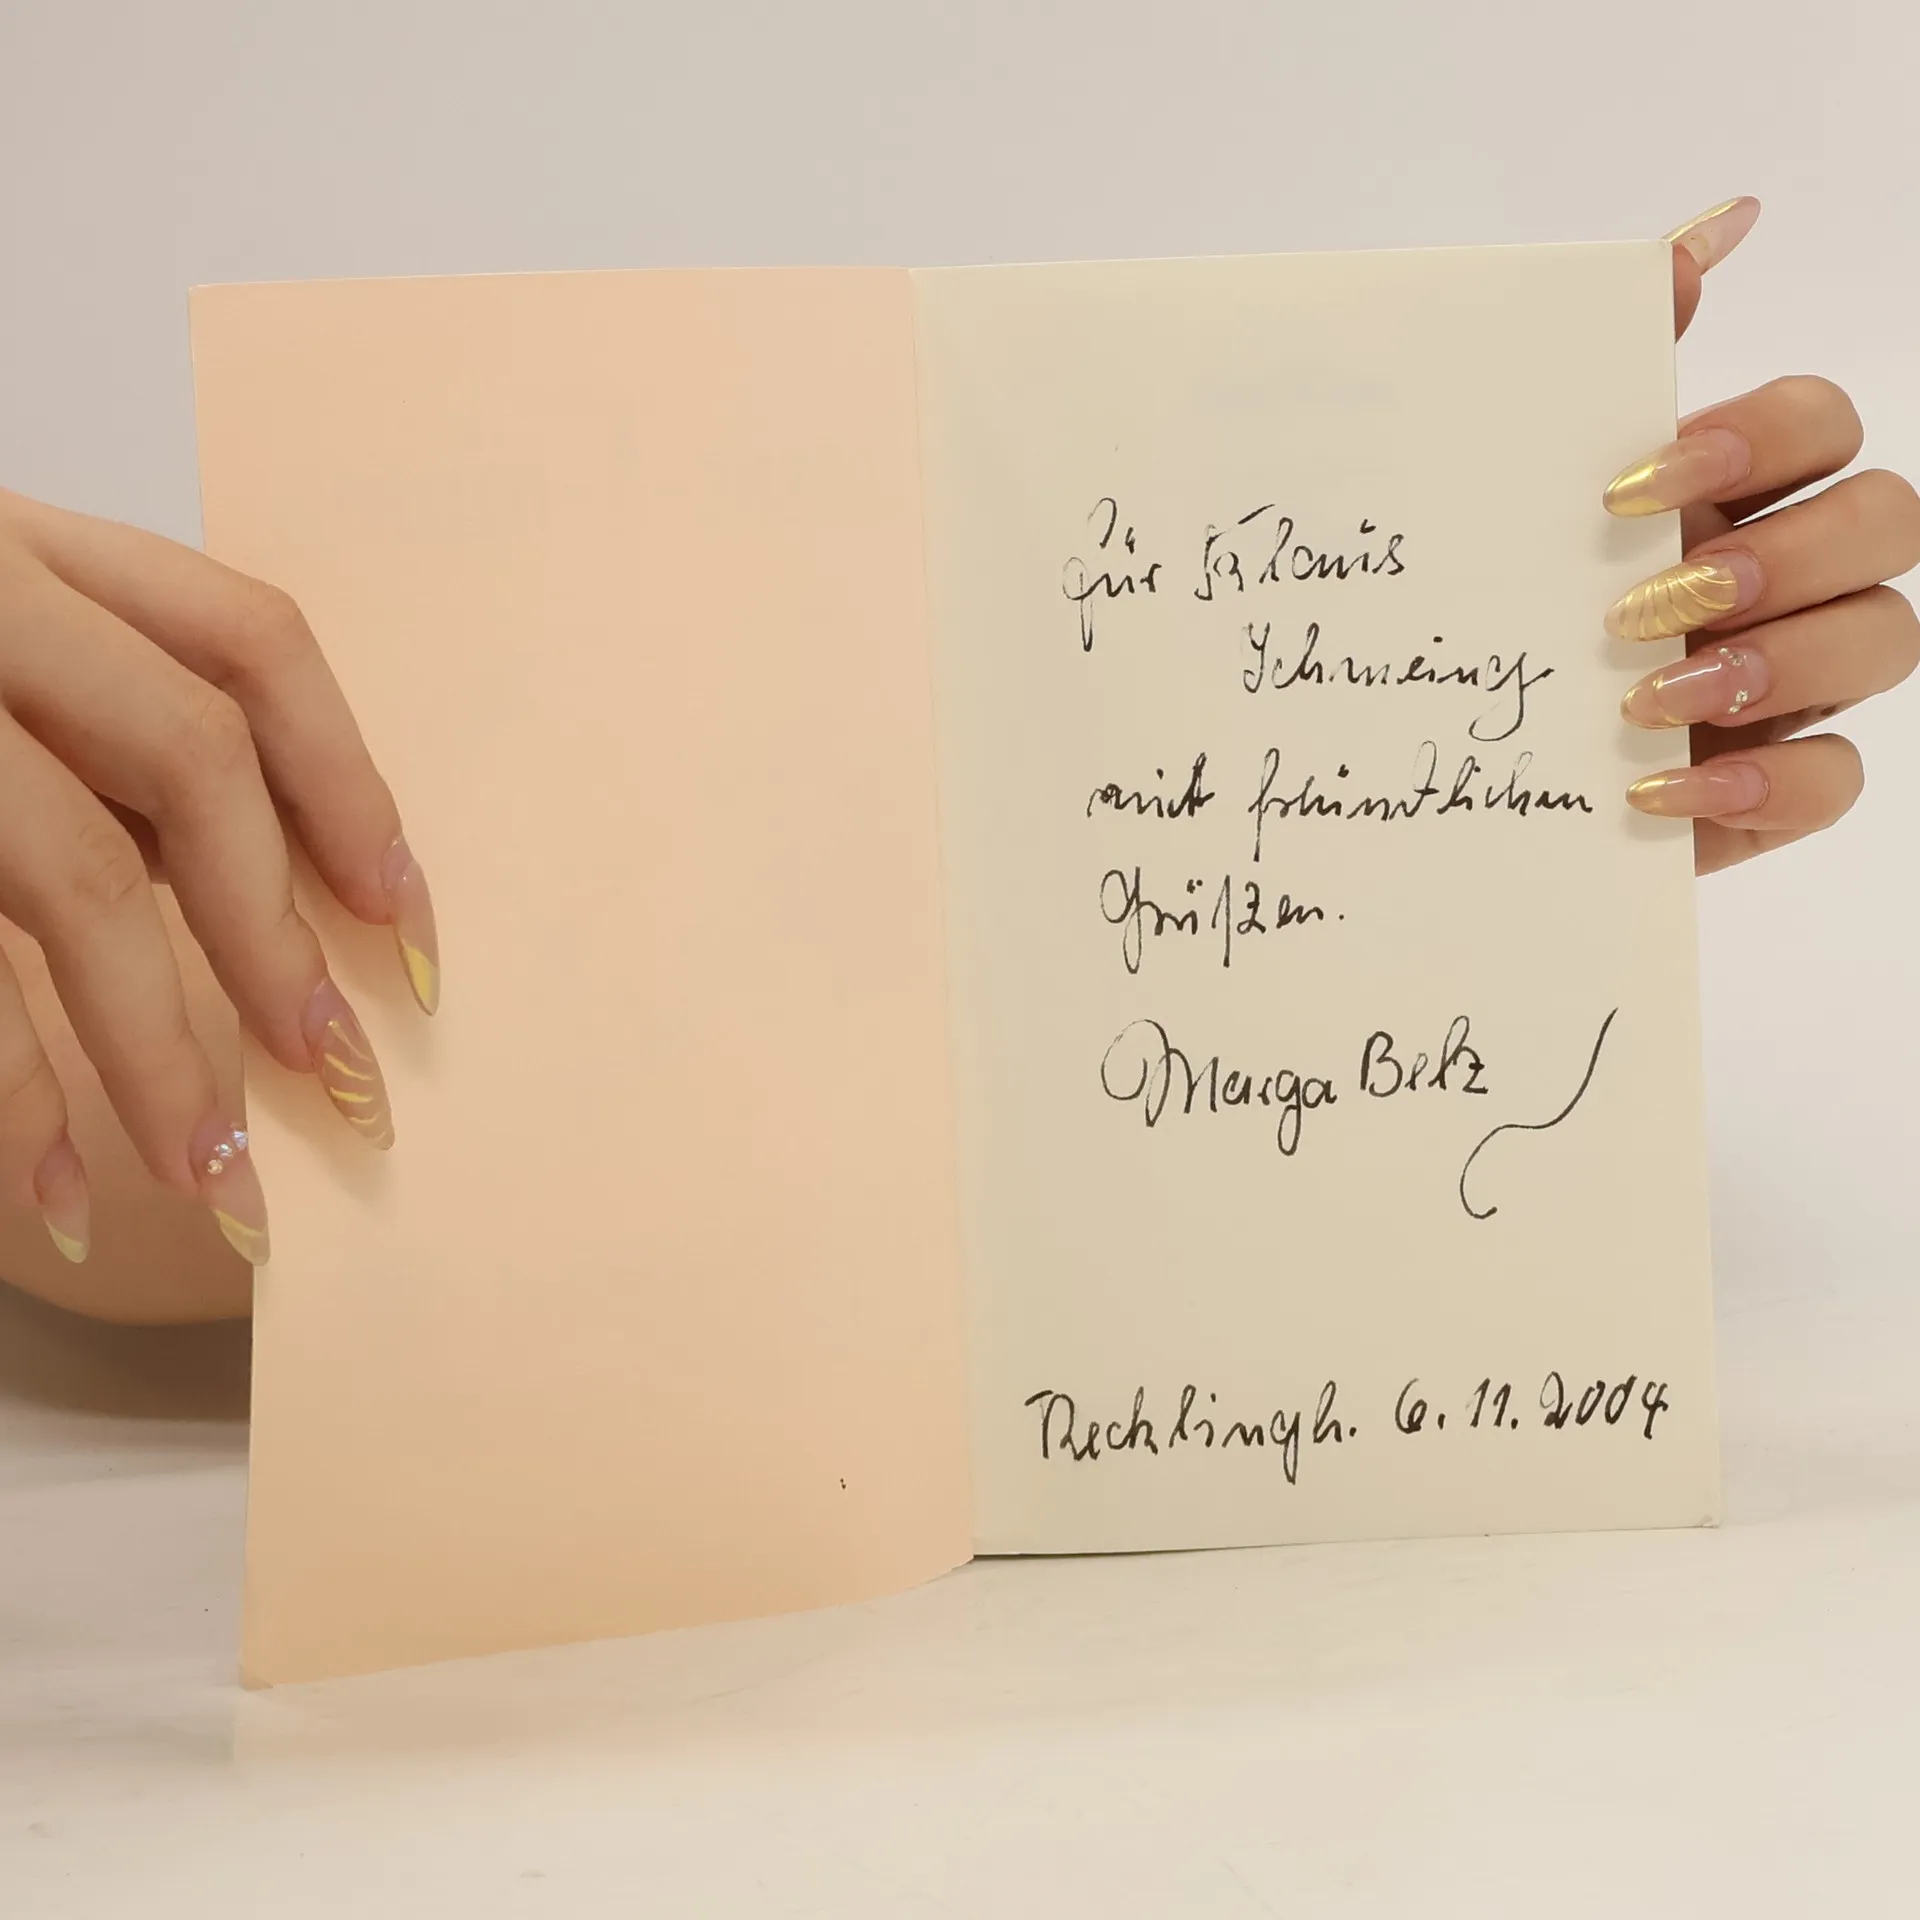 für Klaus
Schmeing
mit freundlichen
Grüßen.
Marga Belz
Recklingh. 6.11.2004